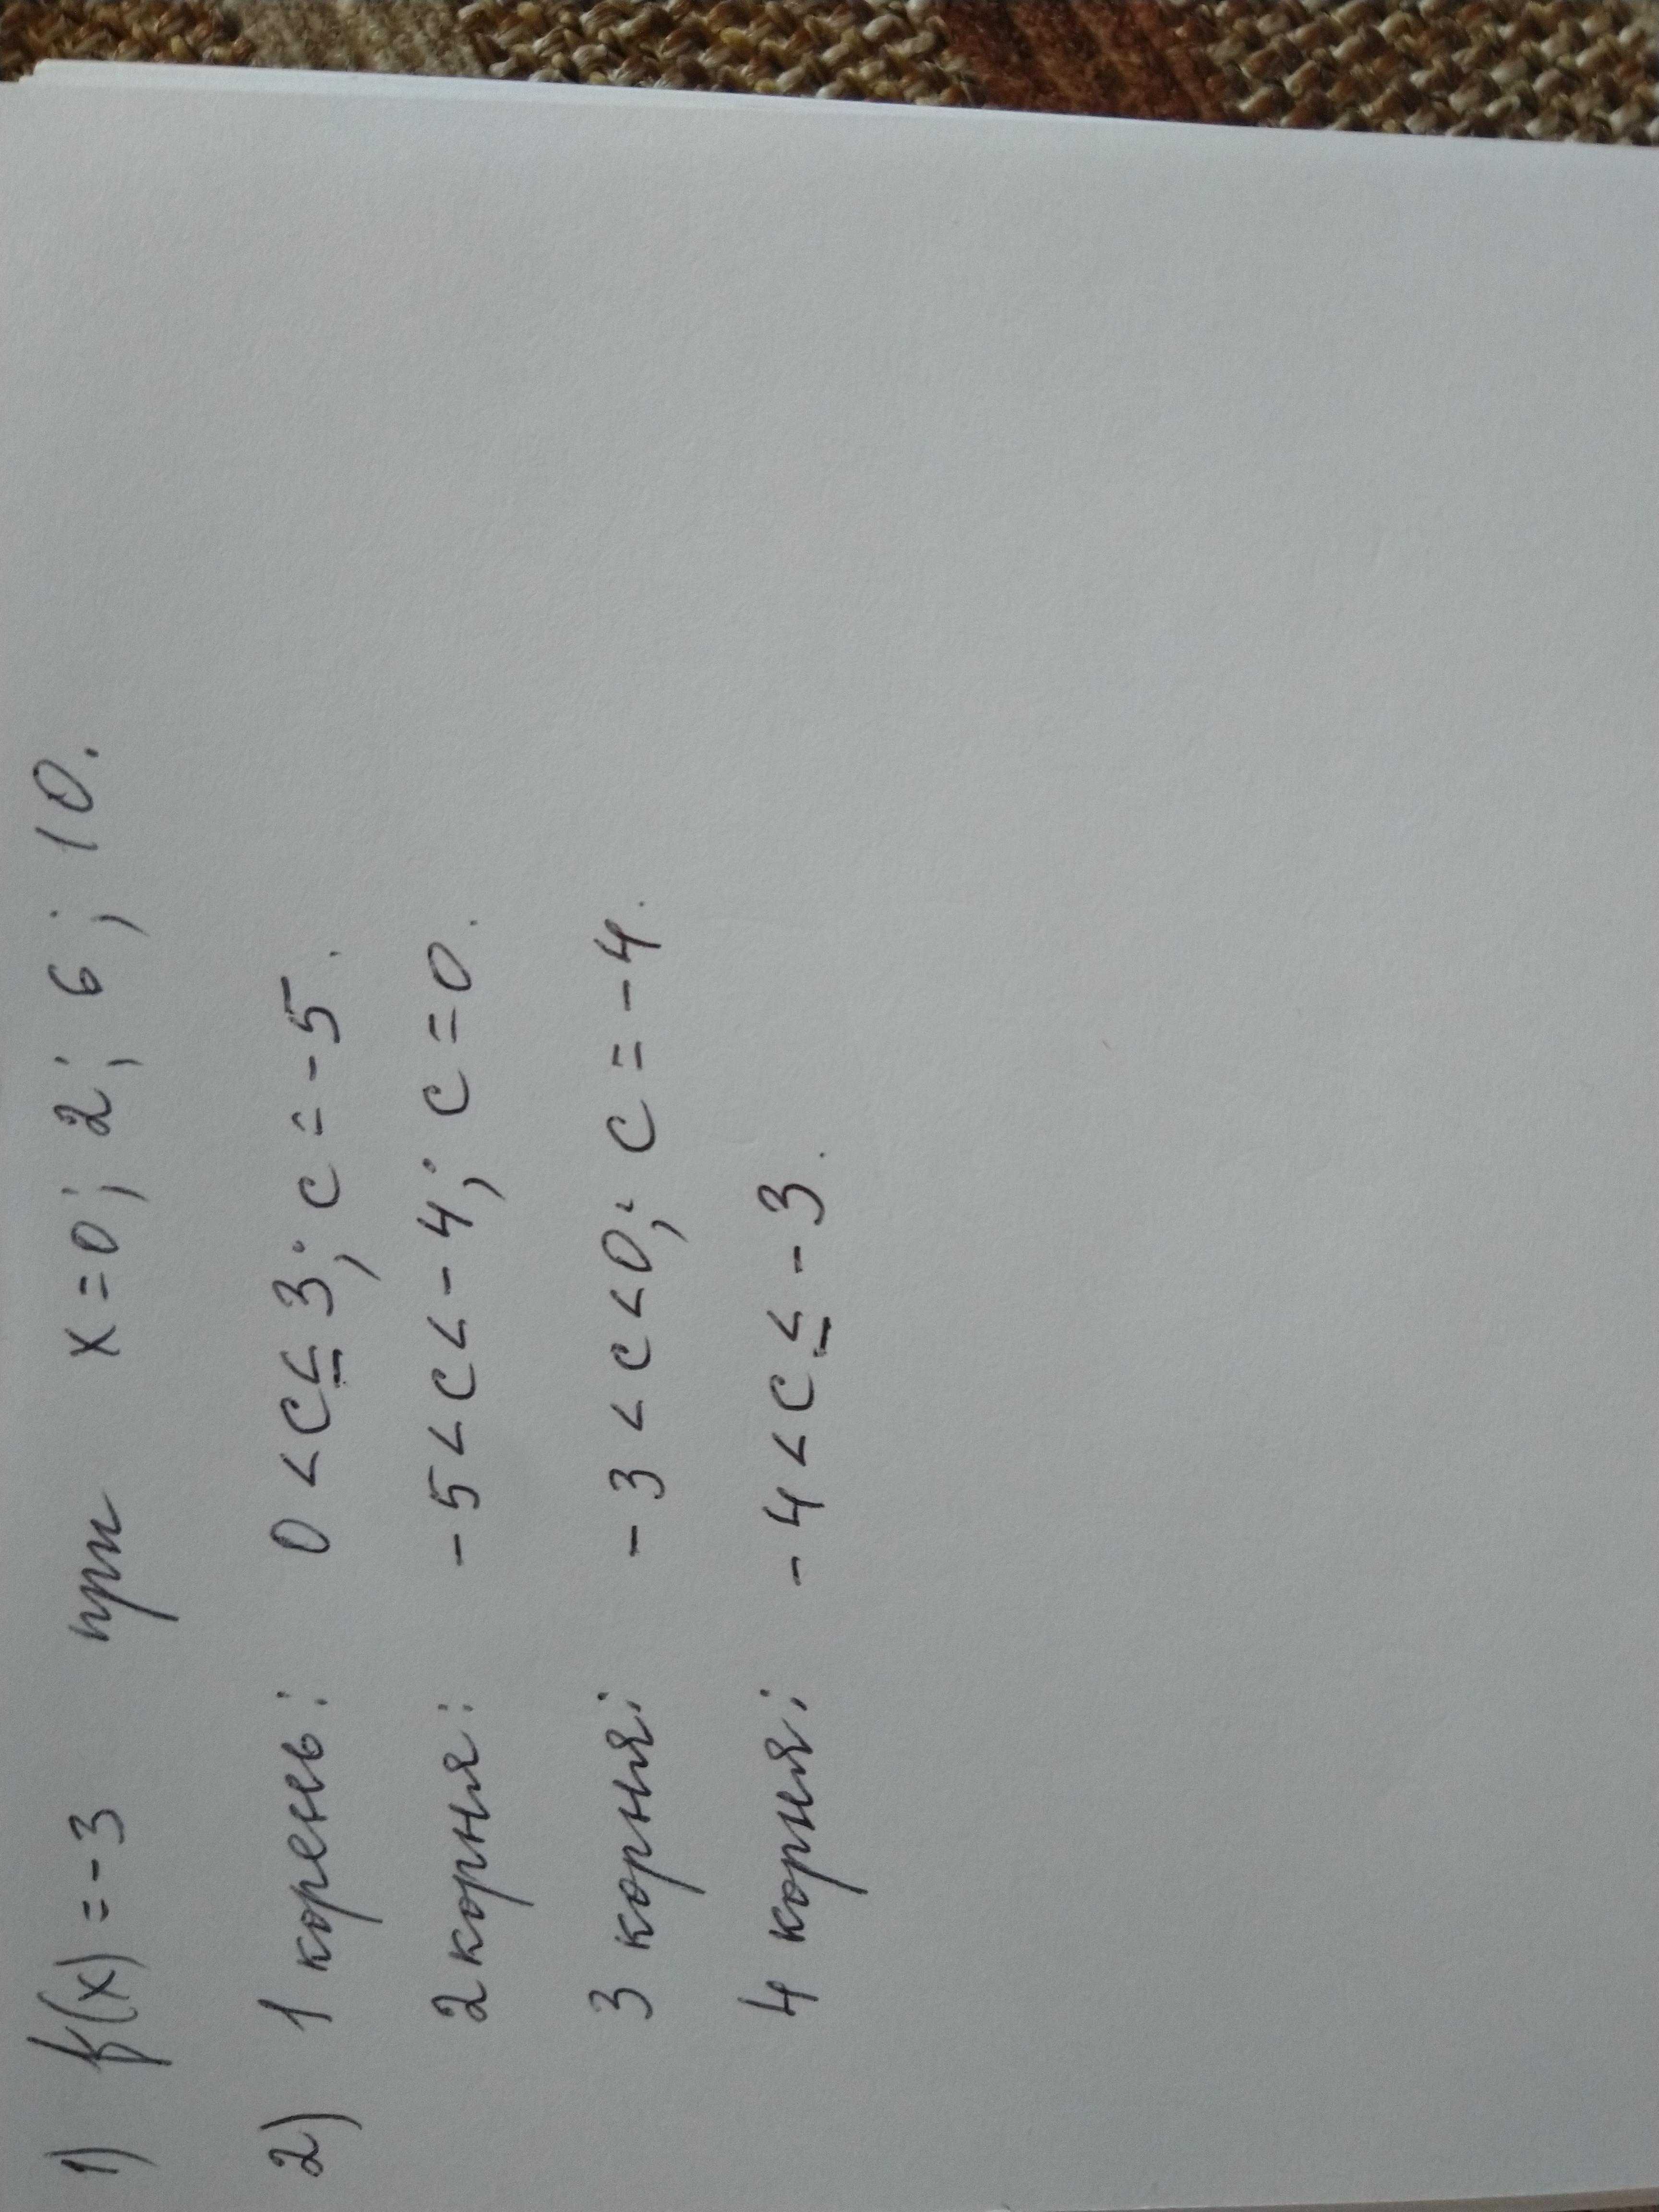 1) f(x) = -3 при x = 0; 2; 6; 10.
2) 1 корень: 0 < c ≤ 3; c = -5.
2 корня: -5 < c < -4; c = 0.
3 корня: -3 < c < 0; c = -4.
4 корня: -4 < c ≤ -3.